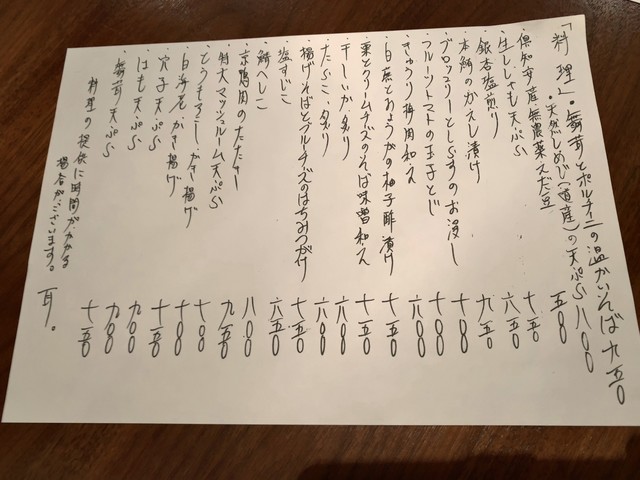 「料理」・舞茸とポルチーニの温かいそば 九五〇
・天然しめじ(道産)の天ぷら 八〇〇
・倶知安産無農薬えだ豆 五〇〇
・生ししゃも天ぷら 十五〇
・銀杏塩煎り 六五〇
・本鯖のかえし漬け 九五〇
・ブロッコリーとしらすのお浸し 十〇〇
・フルーツトマトの玉子とじ 十〇〇
・きゅうり梅肉和え 六〇〇
・白魚とみょうがの柚子酢漬け 十五〇
・栗とクリームチーズのそば味噌和え 十五〇
・干しいか炙り 六〇〇
・たらこ、炙り 六〇〇
・揚げそばとブルーチーズのはちみつがけ 十五〇
・塩すじこ 六五〇
・鯖へしこ 八〇〇
・京鴨肉のたたき 九五〇
・特大マッシュルーム天ぷら 十〇〇
・とうきびかき揚げ 十〇〇
・白海老かき揚げ 十五〇
・穴子天ぷら 九〇〇
・はも天ぷら 九〇〇
・舞茸天ぷら 十五〇
料理の提供に時間がかかる
場合がございます。